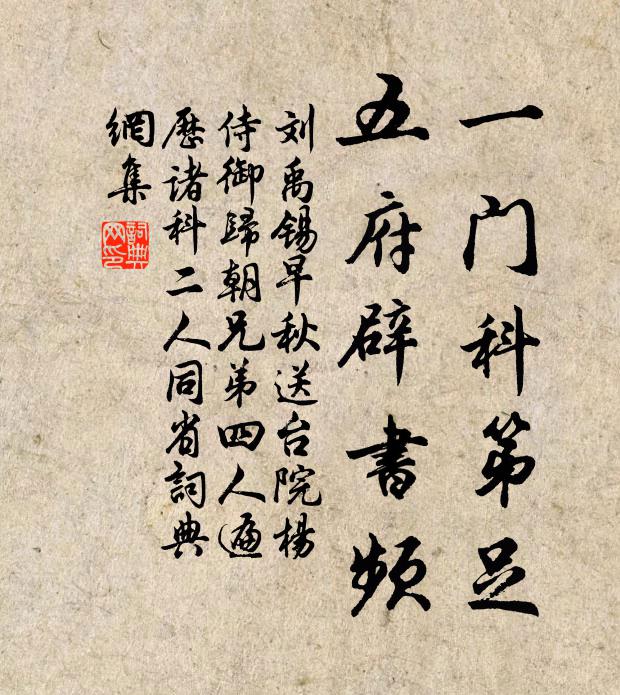 一门科第足
五府辟書頻
刘禹锡早秋送台院楊
侍御歸朝兄弟四人遍
歷诸科二人同省詞典
網集
詞典
网印